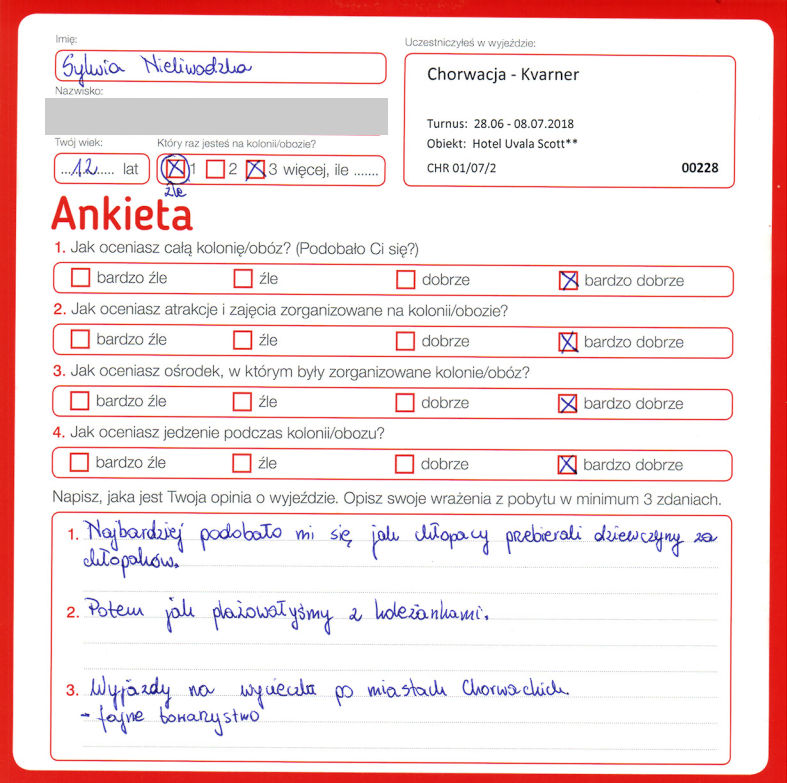 Imię:
Sylwia Nieliwodzka
Nazwisko:
Twój wiek:
...12..... lat
Który raz jesteś na kolonii/obozie?
1 2 3 więcej, ile .......
źle
Uczestniczyłeś w wyjeździe:
Chorwacja - Kvarner
Turnus: 28.06 - 08.07.2018
Obiekt: Hotel Uvala Scott**
CHR 01/07/2 00228
Ankieta
1. Jak oceniasz całą kolonię/obóz? (Podobało Ci się?)
bardzo źle źle dobrze bardzo dobrze
2. Jak oceniasz atrakcje i zajęcia zorganizowane na kolonii/obozie?
bardzo źle źle dobrze bardzo dobrze
3. Jak oceniasz ośrodek, w którym były zorganizowane kolonie/obóz?
bardzo źle źle dobrze bardzo dobrze
4. Jak oceniasz jedzenie podczas kolonii/obozu?
bardzo źle źle dobrze bardzo dobrze
Napisz, jaka jest Twoja opinia o wyjeździe. Opisz swoje wrażenia z pobytu w minimum 3 zdaniach.
1. Najbardziej podobało mi się jak chłopacy przebierali dziewczyny za
chłopaków.
2. Potem jak plażowałyśmy z koleżankami.
3. Wyjazdy na wycieczki po miastach Chorwackich
- fajne towarzystwo